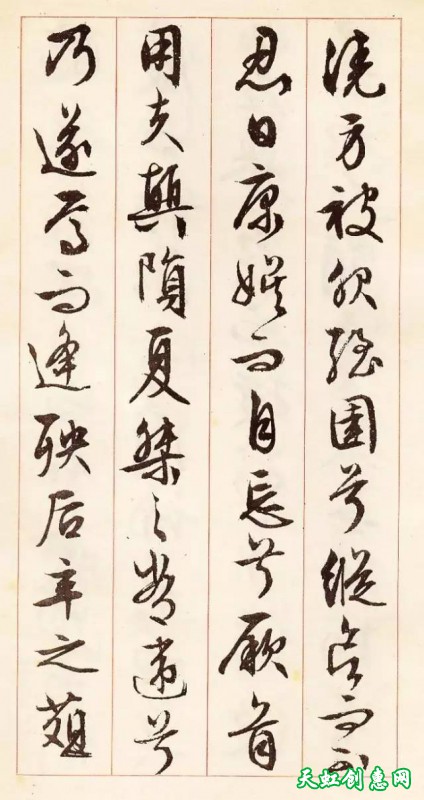 澆身被服强圉兮縱欲而不
忍日康娱而自忘兮厥首
用夫顛隕夏桀之常違兮
乃遂焉而逢殃后辛之菹
天虹创意网